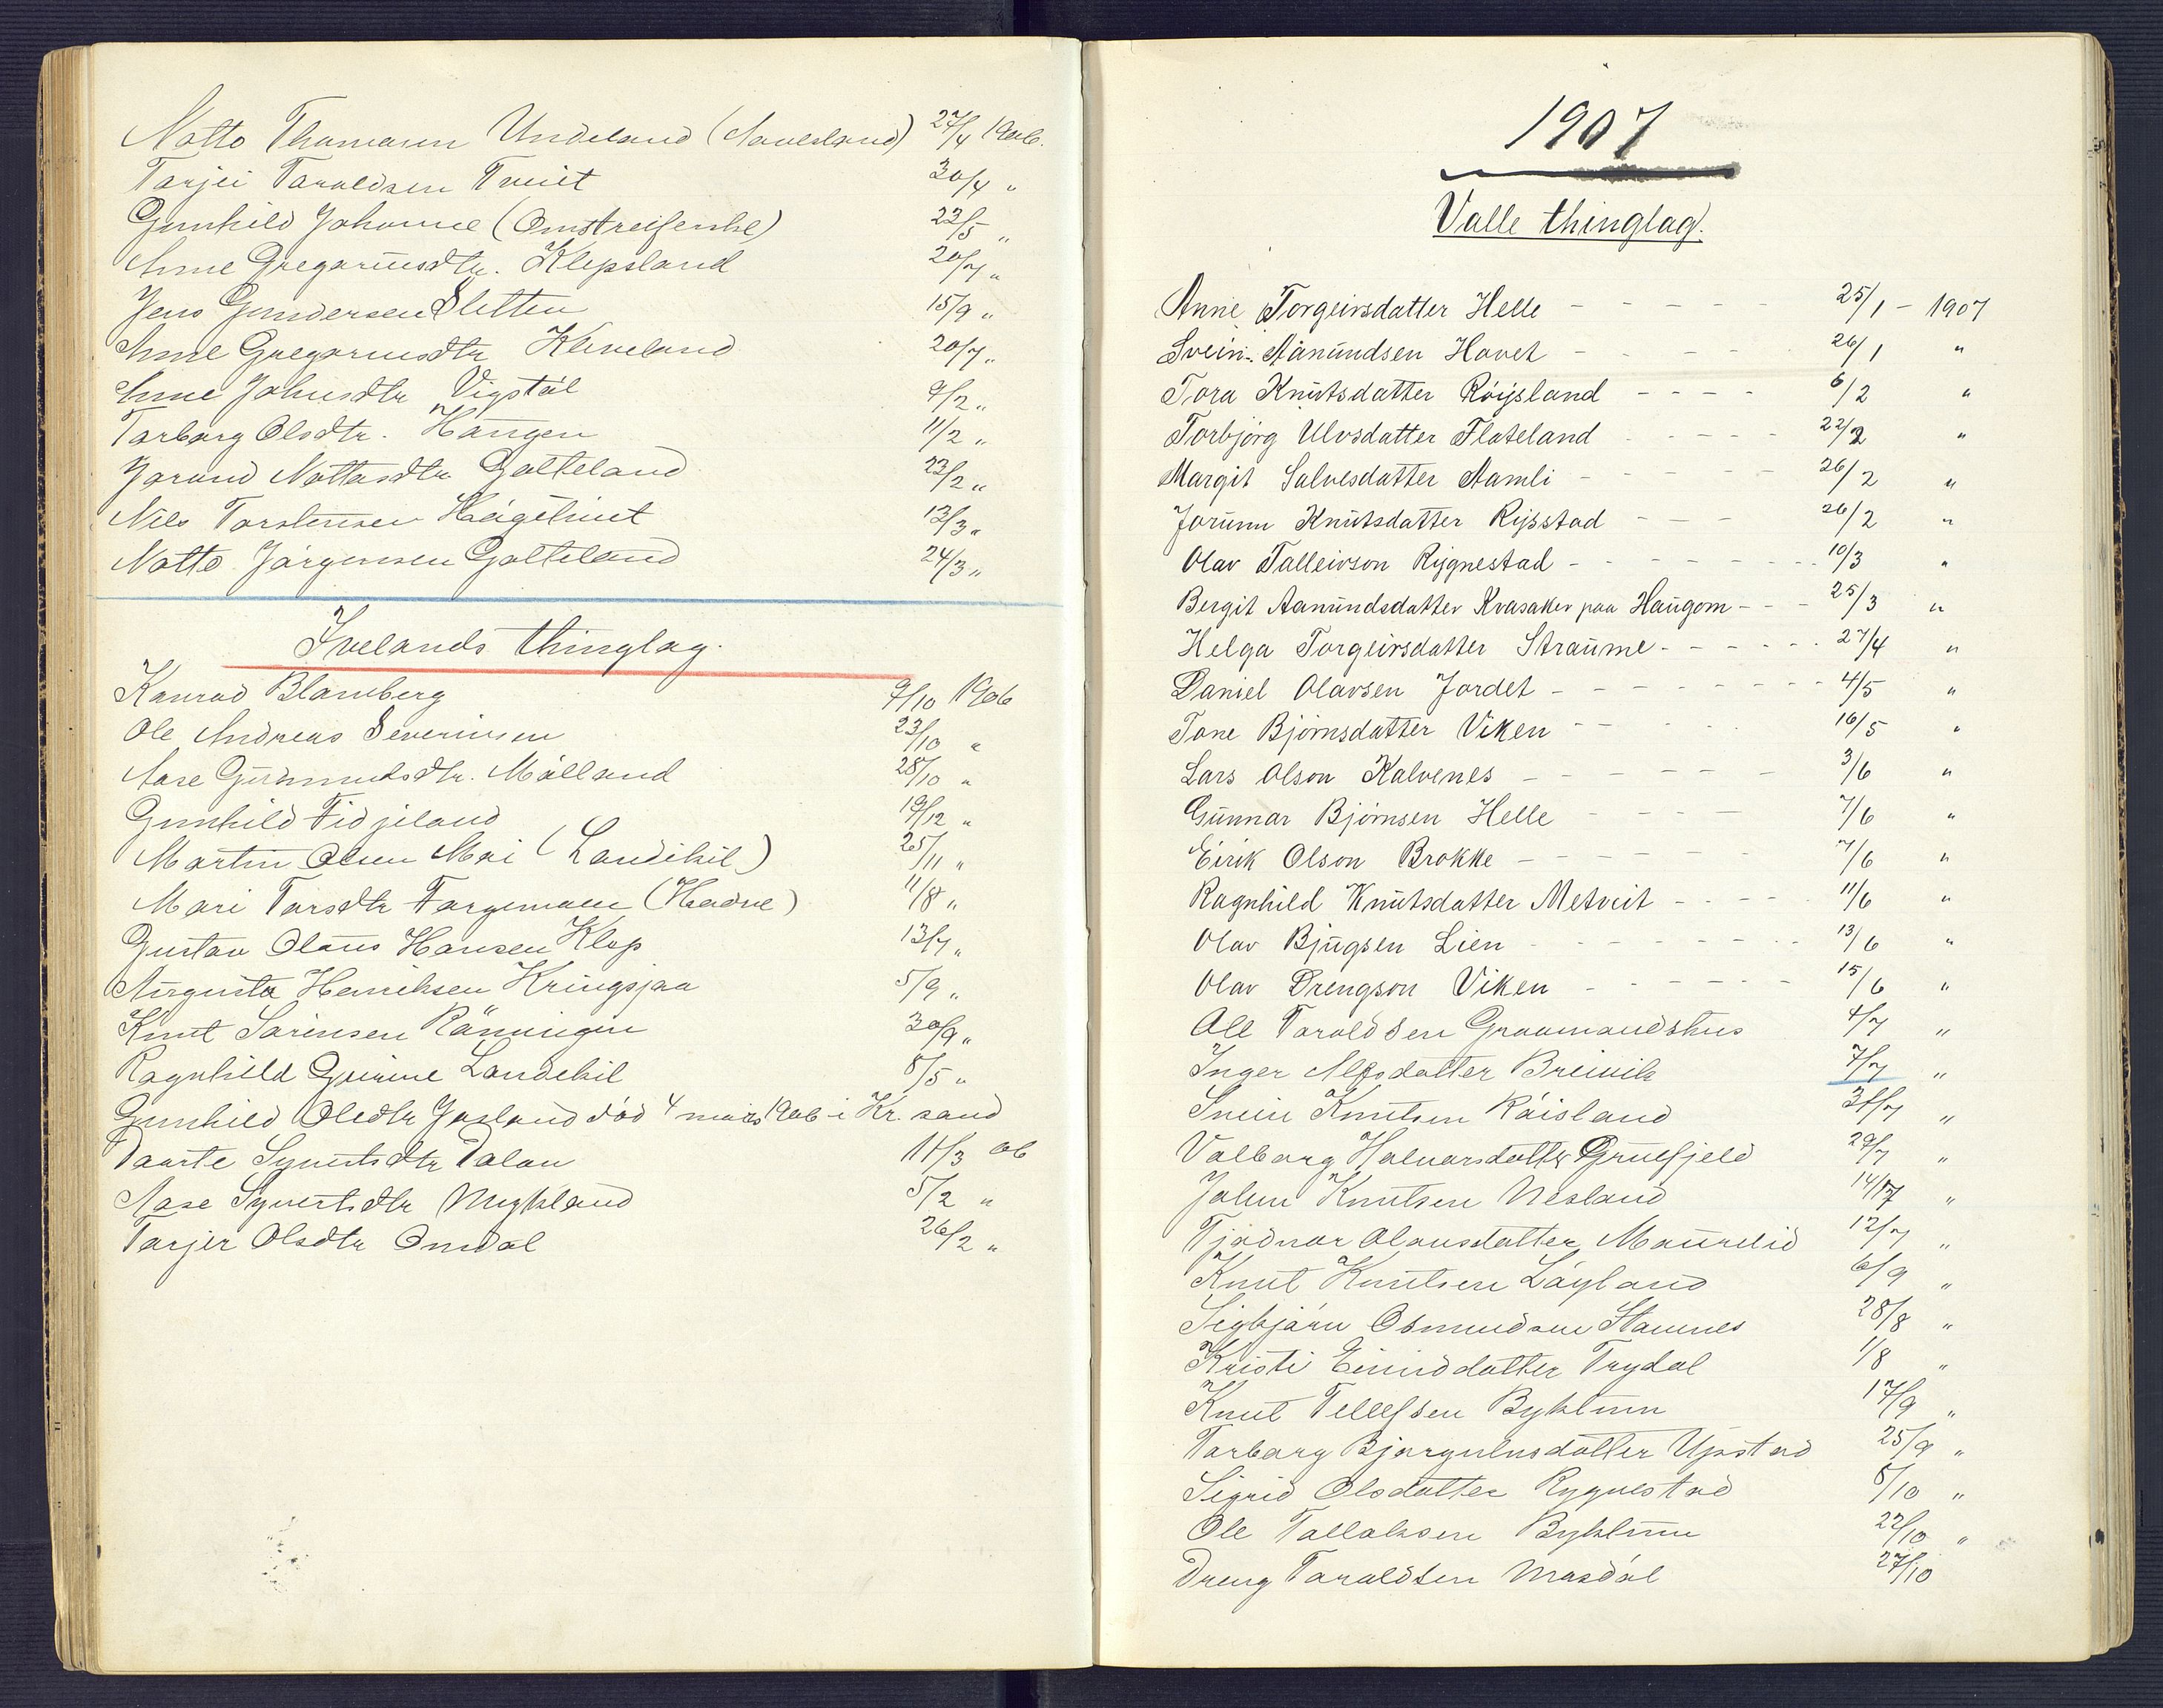 Notto Thomasen Undeland (Aavesland) 27/4 1906.
Tarjei Taraldsen Tveit 30/4 "
Gunhild Johanne (Omstreiferske) 22/5 "
Anne Gregariusdtr. Klepsland 20/7 "
Jens Gundersen Sletten 15/9 "
Anne Gregariusdtr Kleveland 20/7 "
Anne Johnsdtr Vigstøl 9/2 "
Torborg Olsdtr. Haugen 11/2 "
Jorand Nottasdtr Galteland 23/2 "
Nils Torstensen Hægetveit 13/3 "
Notto Jørgensen Galteland 24/3 "
Ivelands thinglag.
Konrad Blomberg 9/10 1906
Ole Andreas Severinsen 23/10 "
Aase Gunmundsdtr. Mølland 28/10 "
Gunhild Fidjeland 19/12 "
Martin Olsen Moi (Landekil) 25/11 "
Mari Torsdtr Fargemoen (Hodne) 11/8 "
Gustav Olaus Hansen Klep 13/7 "
Augusta Henriksen Kringsjaa 5/9 "
Knut Sørensen Rønningen 30/9 "
Ragnhild Gurine Landekil 8/5 "
Gunhild Olsdtr Jorland død 4 mars 1906 i Kr. sand
Daarte Syvertsdtr Dalan 11/3 06
Aase Syvertsdtr Mykland 5/2 "
Tarjer Olsdtr Omdal 26/2 "
1907
Valle thinglag.
Anne Torgeirsdatter Helle - - - - - 25/1 - 1907
Svein Aanundsen Hovet - - - - 26/1 "
Tora Knutsdatter Röysland - - - - 6/2 "
Torbjörg Ulvsdatter Flateland - - - - 22/2 "
Margit Salvesdatter Aamli - - - - - 26/2 "
Jorunn Knutsdatter Rysstad - - - 26/2 "
Olav Talleivson Rygnestad - - - - - - - 10/3 "
Bergit Aanundsdatter Kvasaker paa Haugom - - - 25/3 "
Helga Torgeirsdatter Straume - - - - - 27/4 "
Daniel Olavsen Jordet - - - - - - - - 4/5 "
Tone Björnsdatter Viken - - - 16/5 "
Lars Olson Kalvenes - - - - - - 3/6 "
Gunnar Björnsen Helle - - - - 7/6 "
Eirik Olson Brokke - - - - - - 7/6 "
Ragnhild Knutsdatter Metveit - - - - 11/6 "
Olav Bjugsen Lien - - - - - - - 13/6 "
Olav Drengson Viken - - - - - - 15/6 "
Ole Taraldsen Graamandshus 4/7 "
Inger Alfsdatter Breivik 7/7 "
Svein Knutsen Røisland 31/7 "
Valborg Halvorsdatter Gruefjeld 29/7 "
John Knutsen Nesland 14/7 "
Tjødnar Olausdatter Maurelid 12/7 "
Knut Knutsen Løyland 6/9 "
Sigbjørn Osmundsen Stamnes 28/8 "
Kristi Eivinddatter Trydal 1/8 "
Knut Tellefsen Byklum 17/9 "
Torborg Bjorgulvsdatter Upstad 25/9 "
Sigrid Olsdatter Rygnestad 8/10 "
Ole Tallaksen Byklum 22/10 "
Dreng Taraldsen Mosdøl 27/10